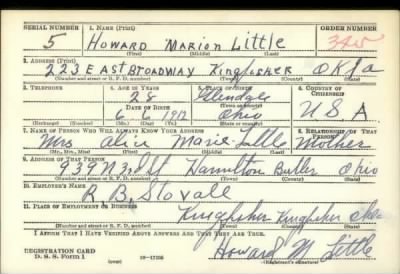 SERIAL NUMBER 1. NAME (Print) ORDER NUMBER
5 HOWARD MARION Little 345
(First) (Middle) (Last)
2. ADDRESS (Print)
223 EAST BROADWAY Kingfisher OKLA
(Number and street or R. F. D. number) (Town) (County) (State)
3. TELEPHONE 4. AGE IN YEARS 5. PLACE OF BIRTH 6. COUNTRY OF CITIZENSHIP
28 Glendale
DATE OF BIRTH
6 1912 Ohio USA
(Exchange) (Number) (Mo.) (Day) (Yr.) (State or country)
7. NAME OF PERSON WHO WILL ALWAYS KNOW YOUR ADDRESS 8. RELATIONSHIP OF THAT PERSON
Mrs Alice Marie Little Mother
(Mr., Mrs., Miss) (First) (Middle) (Last)
9. ADDRESS OF THAT PERSON
939 N 3rd St Hamilton Butler Ohio
(Number and street or R. F. D. number) (Town) (County) (State)
10. EMPLOYER'S NAME
R. B. Stovall
11. PLACE OF EMPLOYMENT OR BUSINESS
Kingfisher Kingfisher Okla
(Number and street or R. F. D. number) (Town) (County) (State)
I AFFIRM THAT I HAVE VERIFIED ABOVE ANSWERS AND THAT THEY ARE TRUE.
REGISTRATION CARD
D. S. S. Form 1 (over) Howard M. Little
(Registrant's signature)